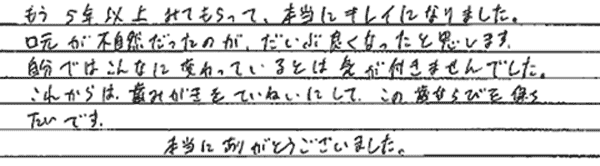 もう5年以上みてもらって、本当にキレイになりました。
口元が不自然だったのが、だいぶ良くなったと思います。
自分ではこんなに変わっているとは気が付きませんでした。
これからは、歯みがきをていねいにして、この歯ならびを保ち
たいです。
本当にありがとうございました。